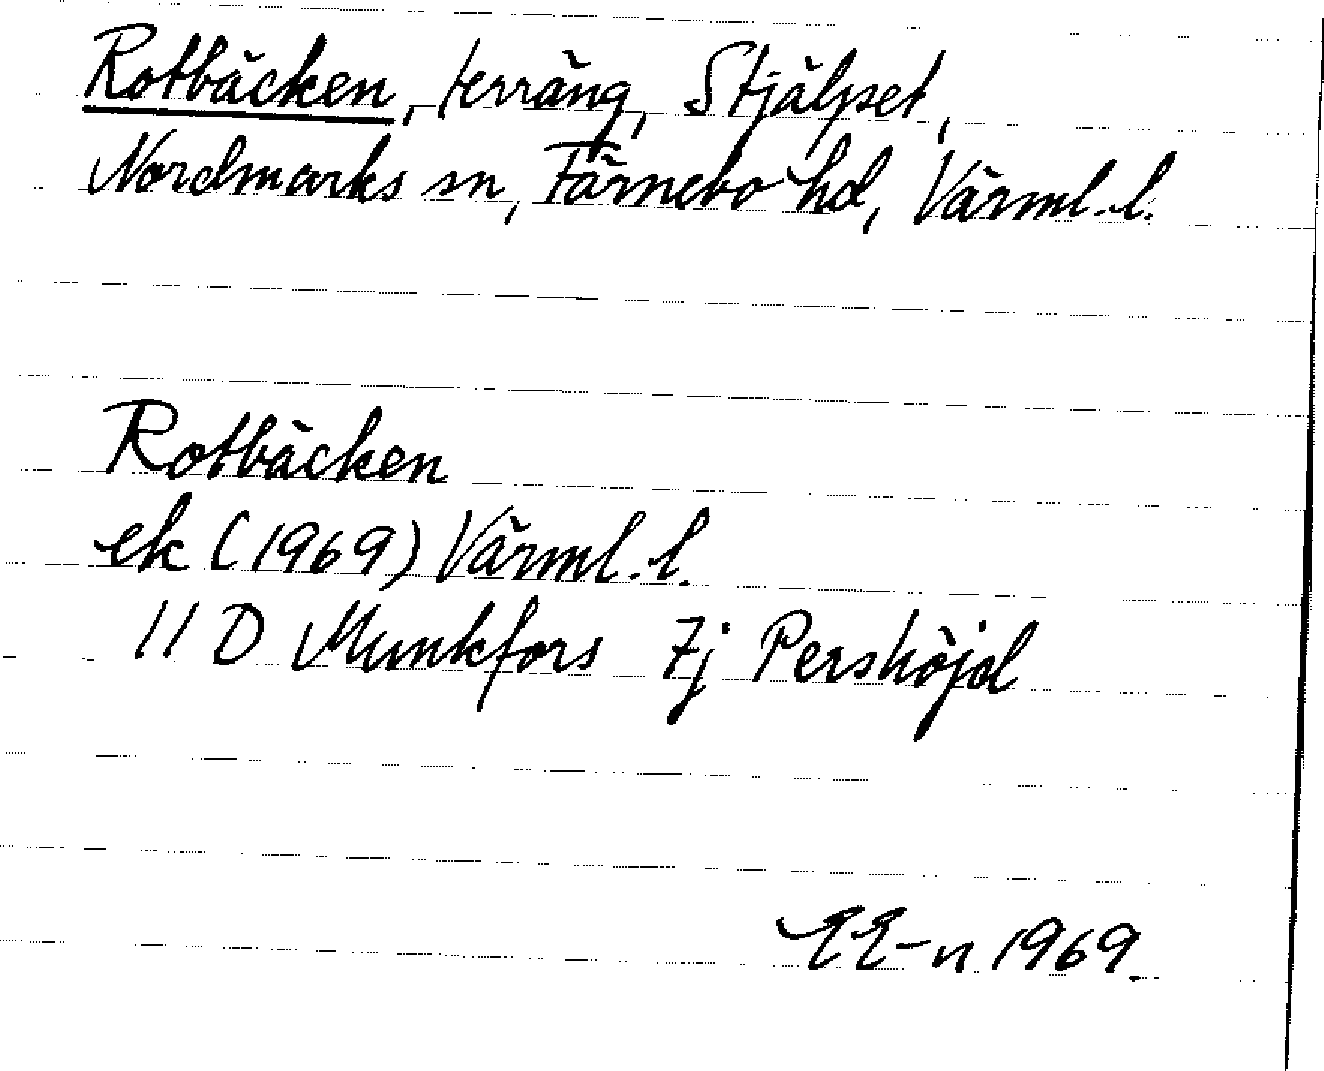 Rotbäcken, terräng, Stjälpet,
Nordmarks sn, Färnebo hd, Värml. l.
Rotbäcken
ek (1969) Värml. l.
11 D Munkfors 7j Pershöjd
EE-n 1969.